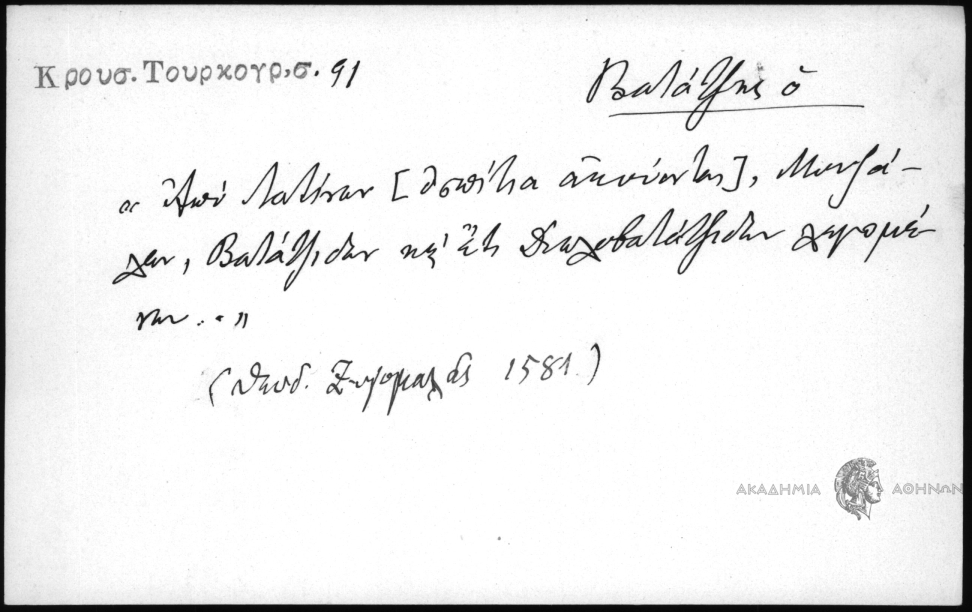 Κρουσ. Τουρκογρ, σ. 91
Βατάτζης ὁ
« Ἀπὸ Λατίνων [ὁσπίτια ἀκούονται], Μουζά-
λων, Βατάτζιδων κὶ ἔτι Διπλοβατάτζιδων λεγομέ-
νων . . »
(Θεοδ. Ζυγομαλᾶς 1581)
ΑΚΑΔΗΜΙΑ ΑΘΗΝΩΝ